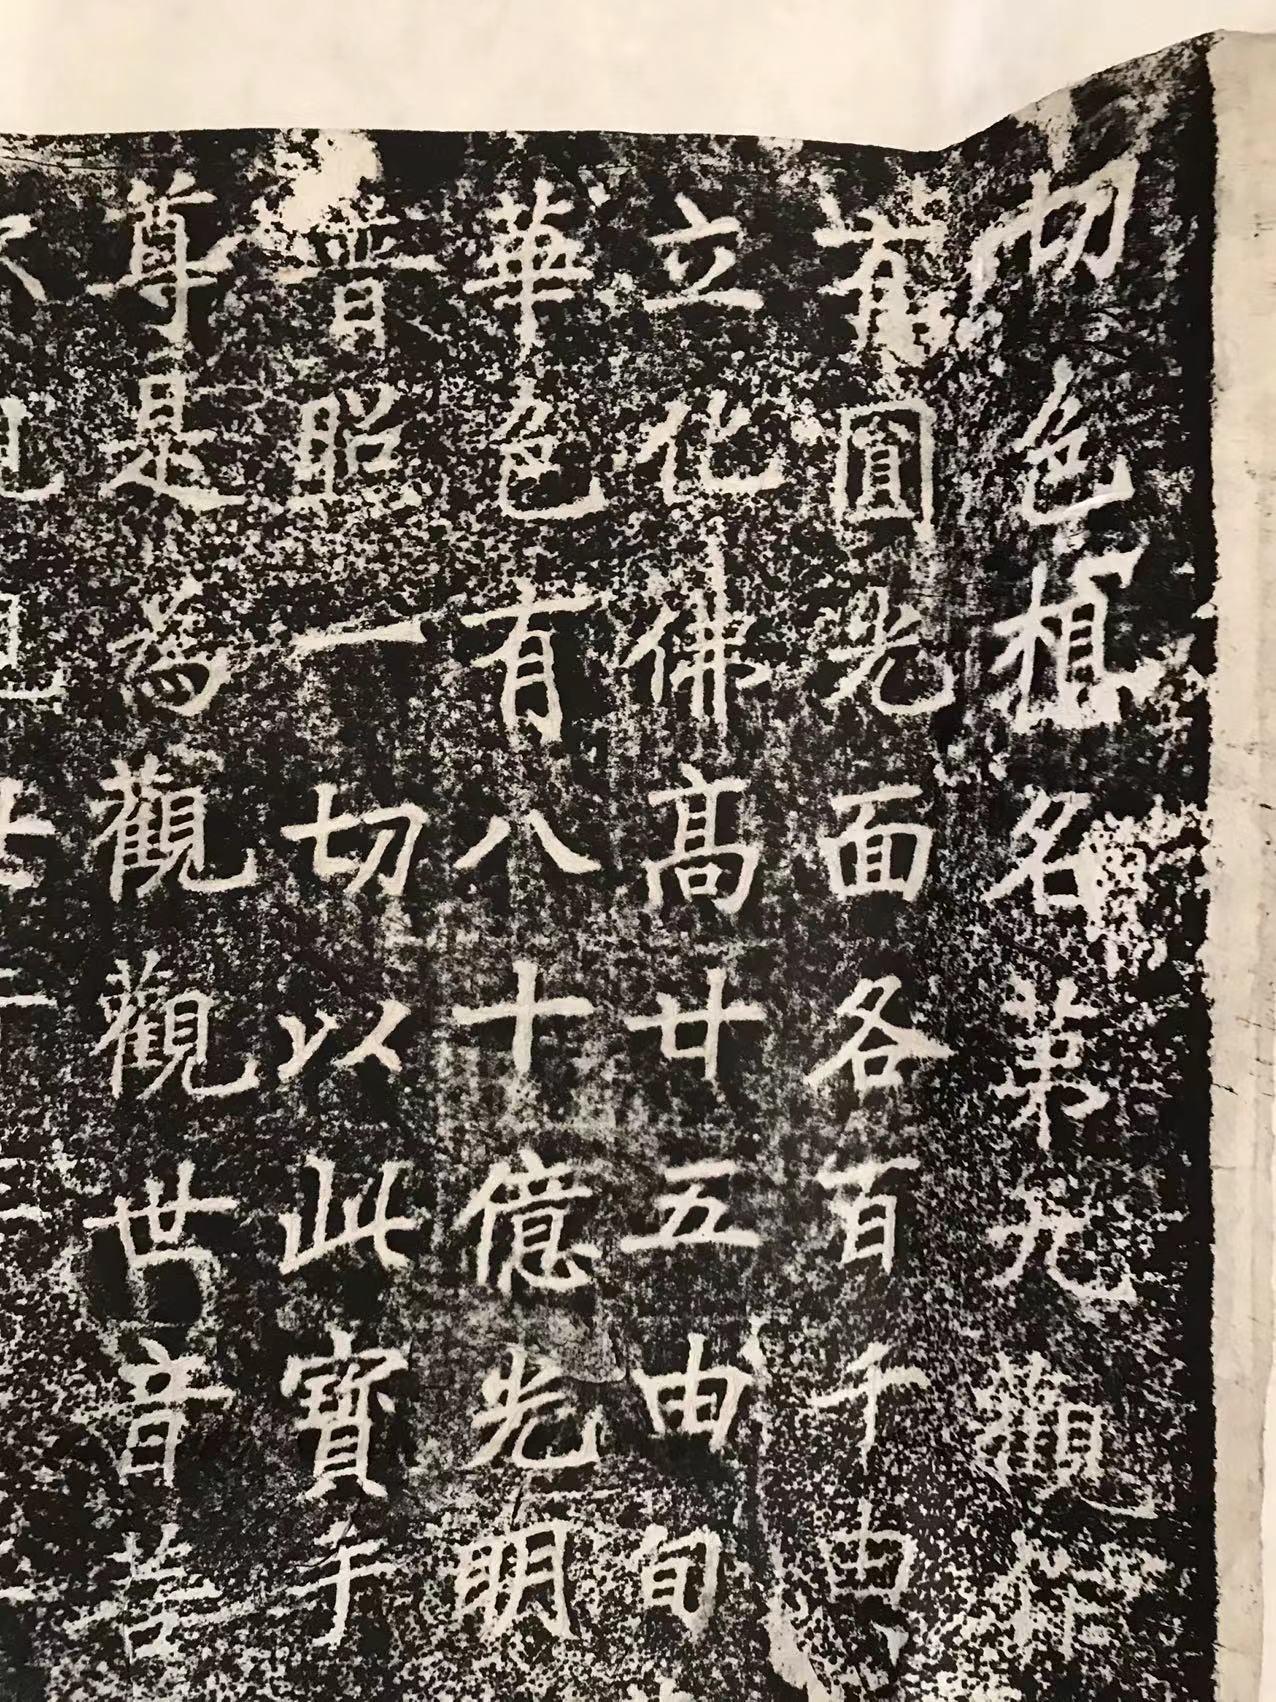 切色想名第九觀作
有圓光面各百千由
立化佛高廿五由旬
華色有八十億光明
普照一切以此寶手
尊是為觀觀世音菩